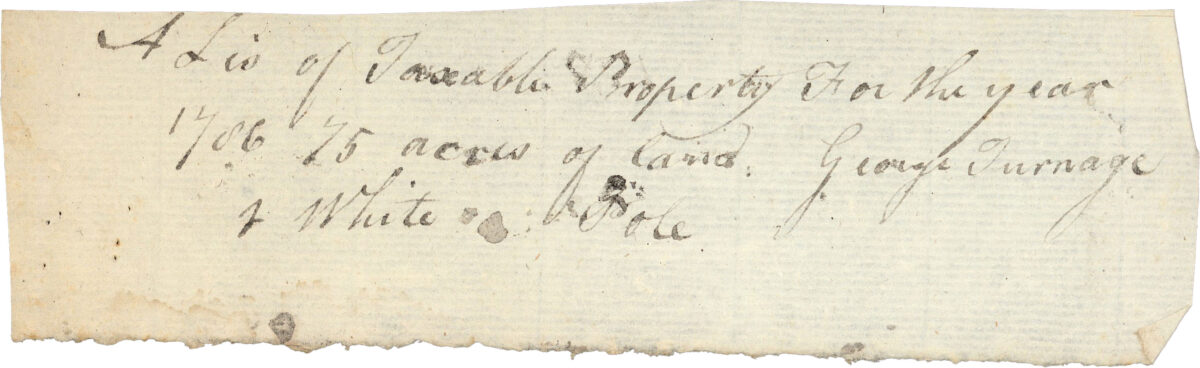 A Lis of Taxable Property For the year
1786 75 acres of land. George Turnage
1 White Pole